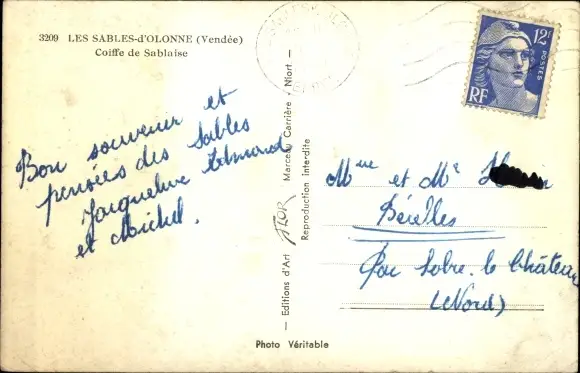 3209 LES SABLES-d'OLONNE (Vendée)
Coiffe de Sablaise
12F
POSTES
RF
Bon souvenir et
pensées des Sables
Jacqueline Edmond
et Michel.
— Editions d'Art FLOR Marceau Carrière - Niort —
Reproduction interdite
Mme et Mr
Bérelles
Par Solre. le Château
(Nord)
Photo Véritable